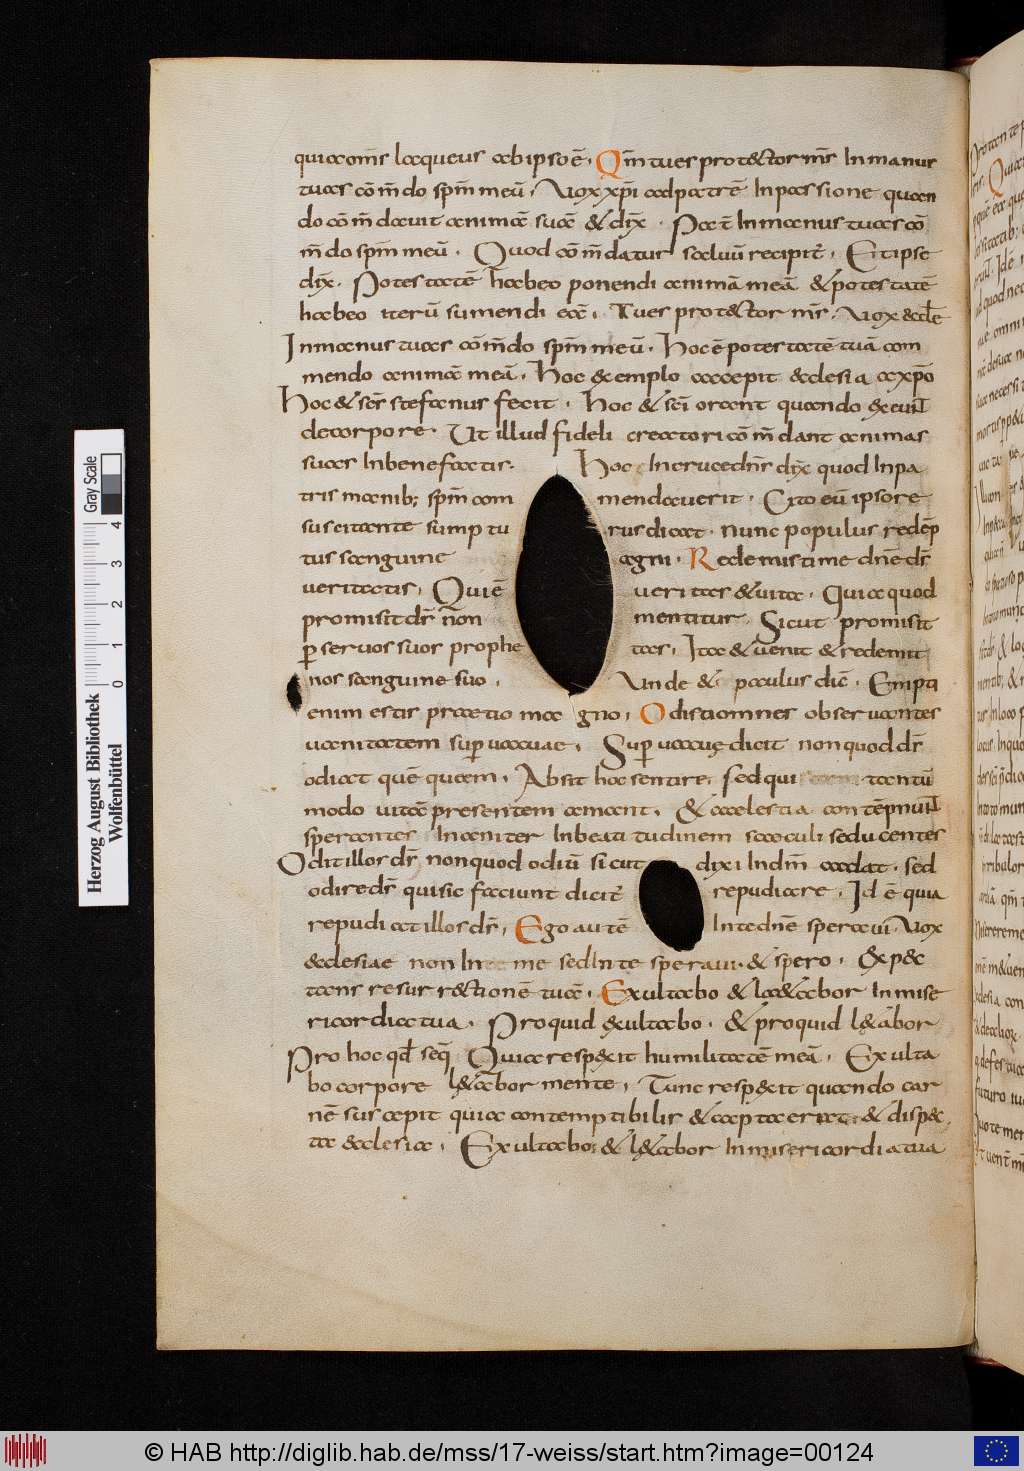 quia om̄s laqueus ab ipso ē. Qm̄ tu es protector m̄s In manus
tuas cōm̄do spm̄ meū. Vox xp̄i ad patrē In passione quan
do cōm̄dauit animā suā & dix̄. Pat̄ In manus tuas cō
m̄do spm̄ meū. Quod cōm̄datur saluū recipit̄. Et ipse
dix̄. Potestatē habeo ponendi animā meā & potestatē
habeo iterū sumendi eā. Tu es protector m̄s. Vox eccl̄e
In manus tuas cōm̄do spm̄ meū. Hoc ē potestatē tuā com
mendo animā meā. Hoc exemplo accepit ecclesia a xp̄o
Hoc & sc̄s stefanus fecit. Hoc & sc̄i orant quando exeunt
de corpore. Ut illud fideli creatori cōm̄dant animas
suas In benefactis. Hoc In cruce dn̄s dix̄ quod In pa
tris manib; spm̄ com mendauerit. Cito eū ipso re
suscitante sumptu rus dicat. nunc populus redēp
tus sanguine agni. Redemisti me dn̄e ds̄
ueritatis. Quiē ueritas & uita. Quia quod
promisit ds̄ nōn mentitur. Sicut promisit
p̄ seruos suos prophe tas. Ita & uenit & redemit
nos sanguine suo. Vnde & paulus dic̄. Empti
enim estis praetio ma gno. Odisti omnes obseruantes
uanitatem sup̄ uacuae. Sup̄ uacuę dicit non quod ds̄
odiat quē quam. Absit hoc sentire. sed qui tantū
modo uitā presentem amant. & caelestia contēpnunt
sperantes Inaniter In beatitudinem saeculi seducentes
Odit illos ds̄ non quod odiū sicut dixi In dm̄ cadat. sed
odire ds̄ qui sic faciunt dicit̄ repudiare. Id ē quia
repudiat illos ds̄. Ego autē In te dn̄e speraui. Vox
ecclesiae non In me sed In te speraui. & spero. Expec
tans resurrectionē tuā. Exultabo & laetabor In mise
ricordia tua. Pro quid exultabo. & pro quid laetabor
Pro hoc qd̄ seq̄ Quia respexit humilitatē meā. Exulta
bo corpore laetabor mente. Tunc respexit quando car
nē suscepit quia contemptibilis & captae erat & dispec
ta ecclesia. Exultabo & laetabor In misericordia tua
Herzog August Bibliothek
Wolfenbüttel
0 1 2 3 4
Gray Scale
© HAB http://diglib.hab.de/mss/17-weiss/start.htm?image=00124